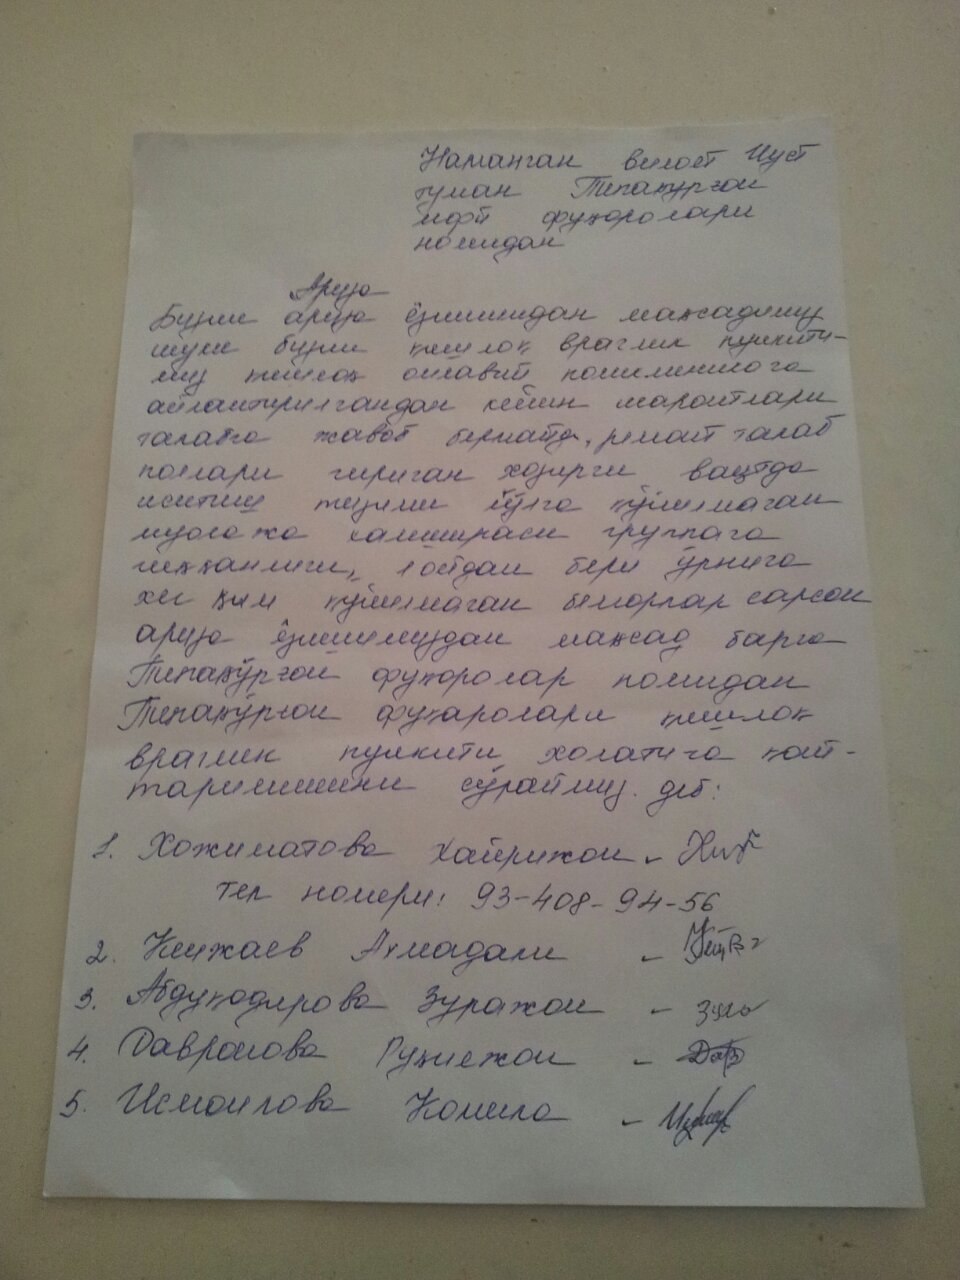 Наманган вилоят Чуст
туман Тепақўрғон
мфй фуқоролари
номидан
Ариза
Бизни ариза ёзишимиздан мақсадимиз
шуки бизни қишлоқ враглик пункити-
миз қишлоқ оилавий поликлиникага
айлантирилгандан кейин шароитлари
талабга жавоб бермайди, ремонт талаб
поллари чириган хозирги вақтда
иситиш тизими йўлга қўйилмаган
муолажа хамшираси группага
чиққанлиги, 1 ойдан бери ўрнига
хеч ким қўйилмаган беморлар сарсон
ариза ёзишимиздан мақсад барча
Тепақўрғон фуқоролар номидан
Тепақўрғон фуқаролари қишлоқ
враглик пункити холатига қай-
тарилишини сўраймиз. деб:
1. Хожиматова Хайрижон -
тел номери: 93-408-94-56
2. Ахмадали -
3. Абдуқодирова Зуражон -
4. Давронова -
5. Исмоилова Комила -